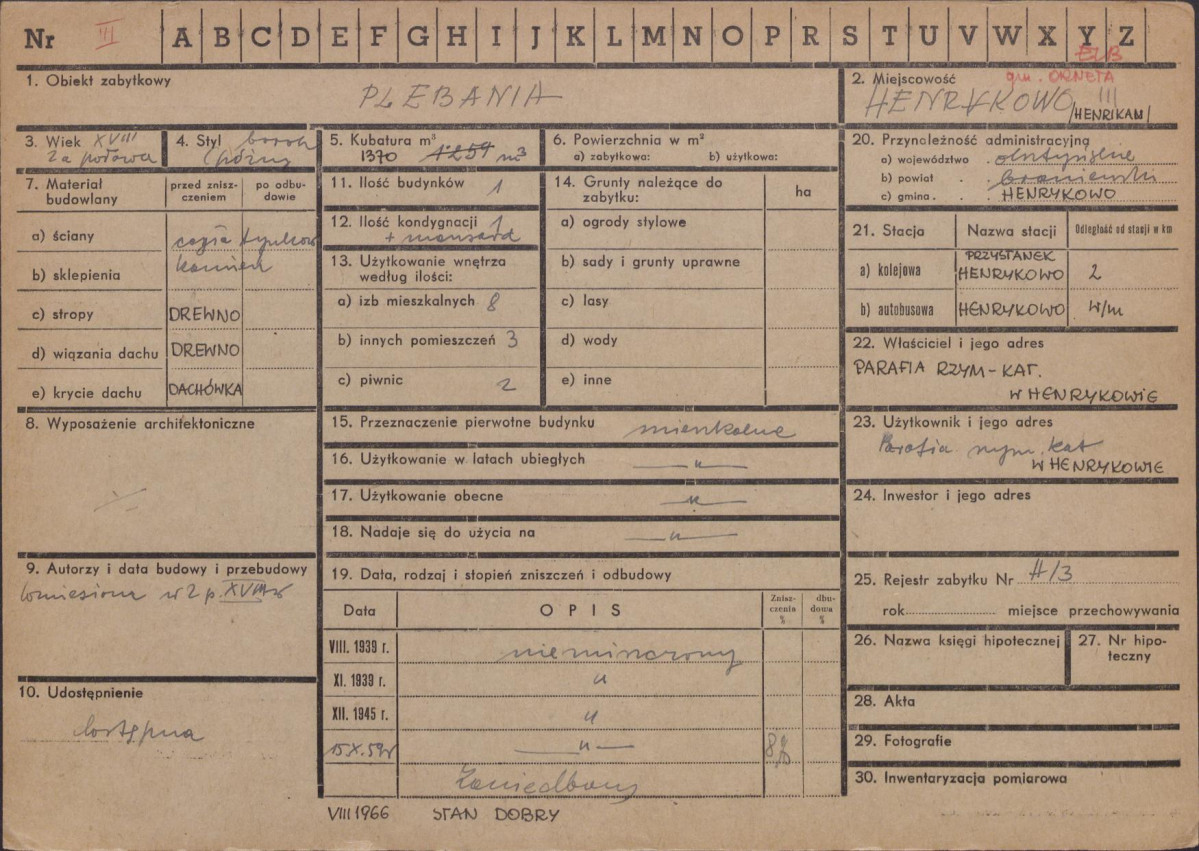 Nr III A B C D E F G H I J K L M N O P R S T U V W X Y Z
EZB
1. Obiekt zabytkowy
PLEBANIA
2. Miejscowość
gm. ORNETA
HENRYKOWO
/HENRIKAM/
3. Wiek XVIII
2a połowa
4. Styl barok
późny
5. Kubatura m³
1370 1259 m3
6. Powierzchnia w m²
a) zabytkowa: b) użytkowa:
7. Materiał budowlany
przed zniszczeniem
po odbudowie
a) ściany
cegła tynkow
b) sklepienia
kamień
c) stropy DREWNO
d) wiązania dachu DREWNO
e) krycie dachu DACHÓWKA
8. Wyposażenie architektoniczne
9. Autorzy i data budowy i przebudowy
wzniesiona w 2 p. XVIII w
10. Udostępnienie
dostępna
11. Ilość budynków 1
12. Ilość kondygnacji 1
+ mansard
13. Użytkowanie wnętrza
według ilości:
a) izb mieszkalnych 8
b) innych pomieszczeń 3
c) piwnic 2
14. Grunty należące do
zabytku:
ha
a) ogrody stylowe
b) sady i grunty uprawne
c) lasy
d) wody
e) inne
15. Przeznaczenie pierwotne budynku mieszkalne
16. Użytkowanie w latach ubiegłych — " —
17. Użytkowanie obecne — " —
18. Nadaje się do użycia na — " —
19. Data, rodzaj i stopień zniszczeń i odbudowy
Data OPIS Zniszczenia % dbudowa %
VIII. 1939 r. niezniszczony
XI. 1939 r. "
XII. 1945 r. "
15.X.59r — " — 8%
Zaniedbany
VIII 1966 STAN DOBRY
20. Przynależność administracyjną
a) województwo olsztyńskie
b) powiat braniewski
c) gmina HENRYKOWO
21. Stacja Nazwa stacji Odległość od stacji w km
a) kolejowa PRZYSTANEK HENRYKOWO 2
b) autobusowa HENRYKOWO w/m
22. Właściciel i jego adres
PARAFIA RZYM-KAT.
W HENRYKOWIE
23. Użytkownik i jego adres
Parafia rzym. kat
W HENRYKOWIE
24. Inwestor i jego adres
25. Rejestr zabytku Nr H/3
rok miejsce przechowywania
26. Nazwa księgi hipotecznej
27. Nr hipoteczny
28. Akta
29. Fotografie
30. Inwentaryzacja pomiarowa